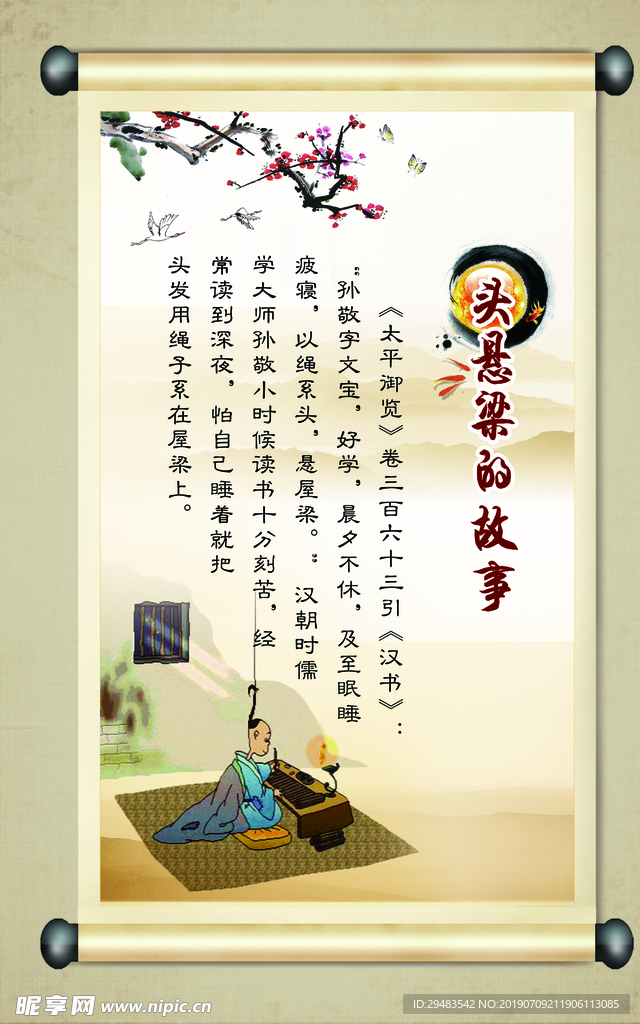 头悬梁的故事
《太平御览》卷三百六十三引《汉书》：
“孙敬字文宝，好学，晨夕不休，及至眠睡
疲寝，以绳系头，悬屋梁。”汉朝时儒
学大师孙敬小时候读书十分刻苦，经
常读到深夜，怕自己睡着就把
头发用绳子系在屋梁上。
昵享网 www.nipic.cn
ID:29483542 NO:20190709211906113085